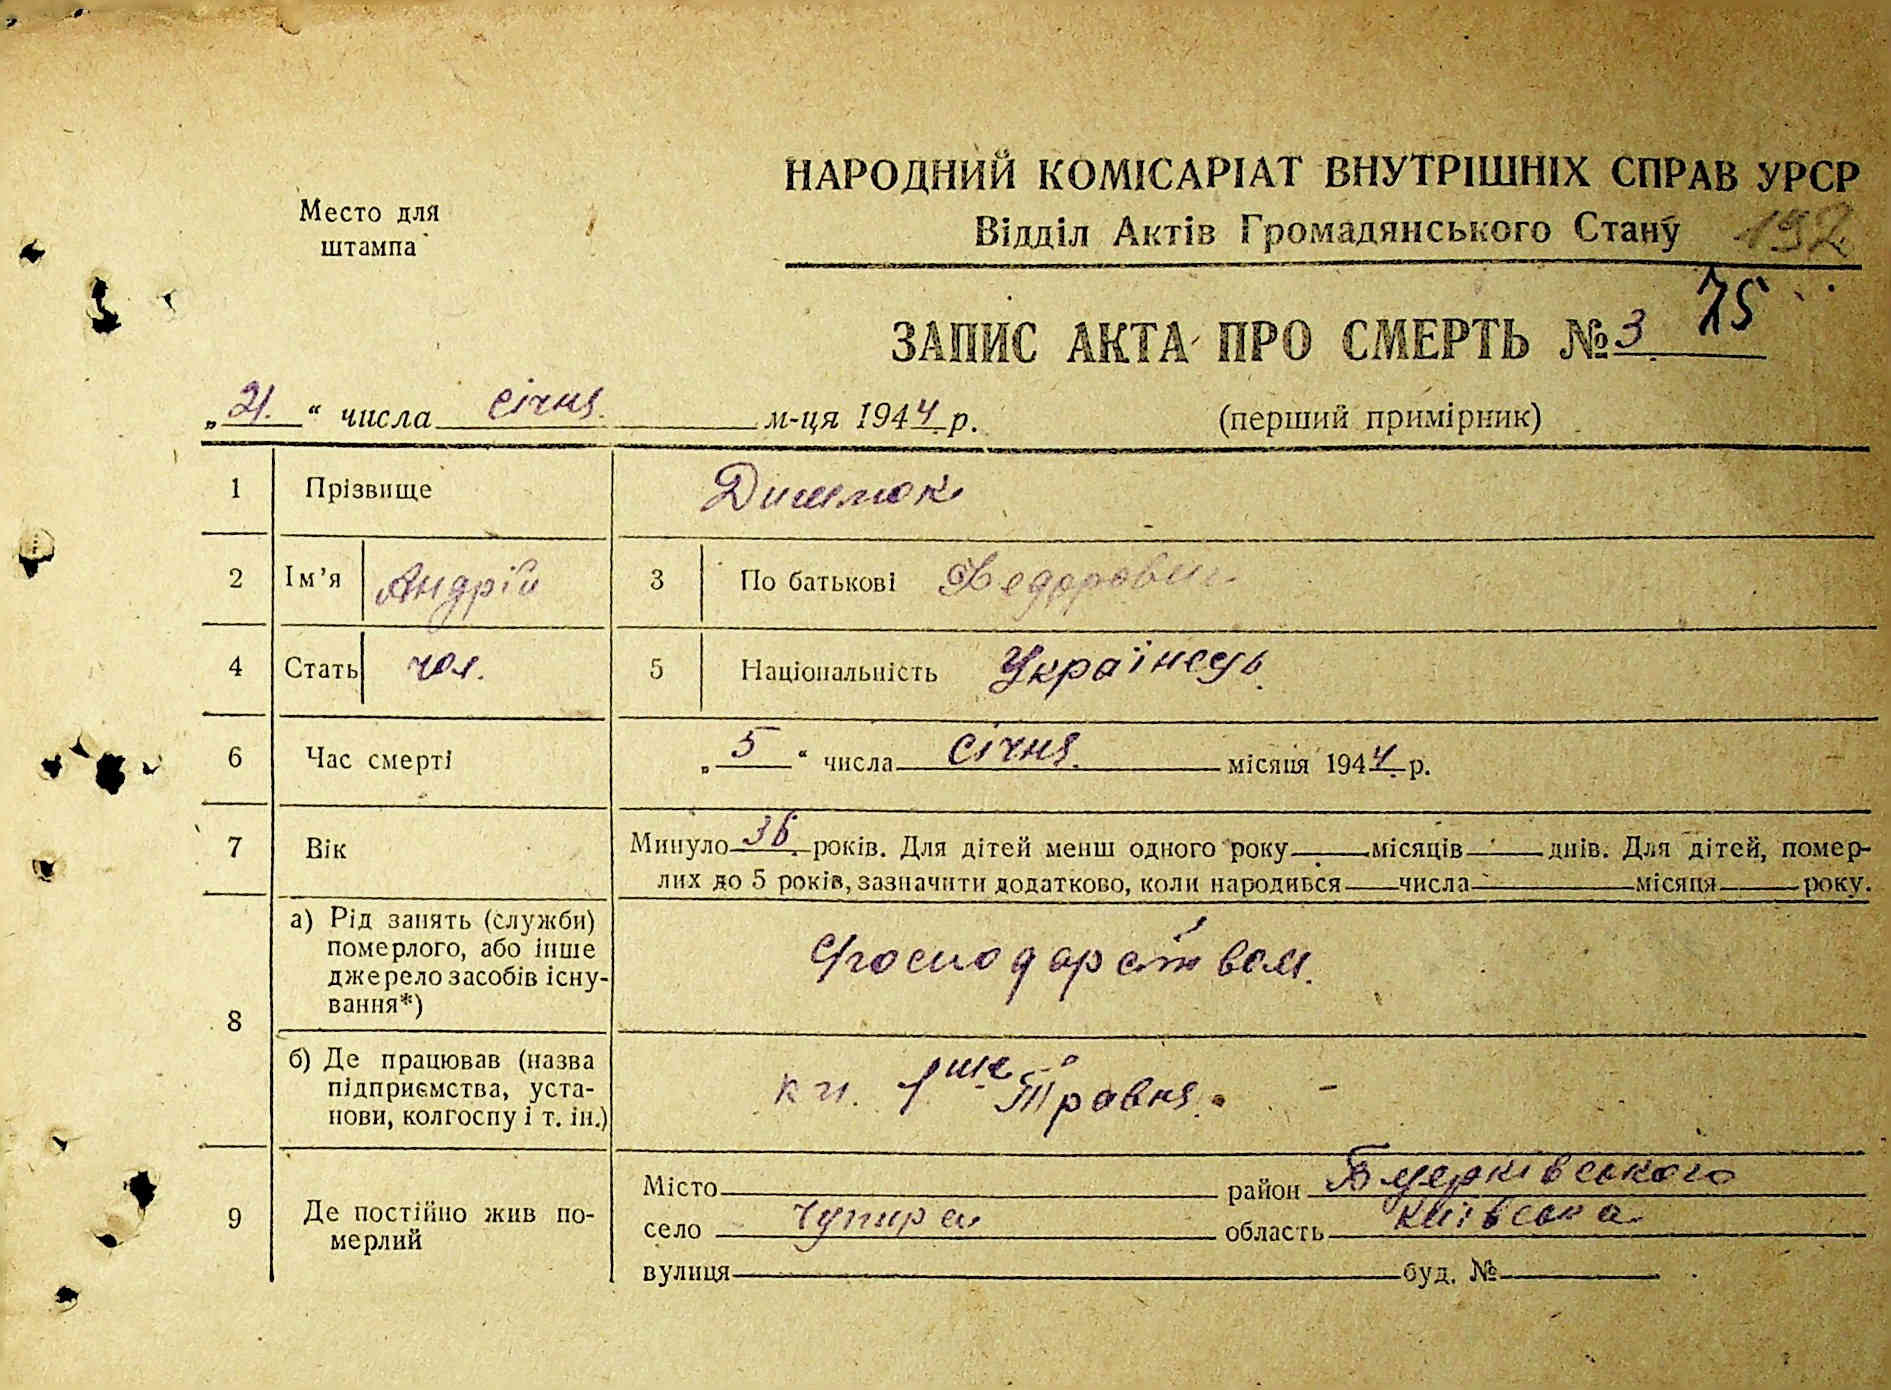 НАРОДНИЙ КОМІСАРІАТ ВНУТРІШНІХ СПРАВ УРСР
Место для
штампа
Відділ Актів Громадянського Стану 192
ЗАПИС АКТА ПРО СМЕРТЬ № 3. 75
„21.“ числа січня. м-ця 1944 р. (перший примірник)
1 Прізвище
2 Ім’я Андрій 3 По батькові Федорович
4 Стать чол. 5 Національність Українець.
6 Час смерті „5“ числа січня. місяця 1944. р.
7 Вік Минуло 36. років. Для дітей менш одного року місяців днів. Для дітей, помер-
лих до 5 років, зазначити додатково, коли народився числа місяця року.
8 а) Рід занять (служби)
померлого, або інше
джерело засобів існу-
вання*)
господарством.
б) Де працював (назва
підприємства, уста-
нови, колгоспу і т. ін.)
1ше Травня.
9 Де постійно жив по-
мерлий
Місто район Б церківського
село Чупира область Київська
вулиця буд. №